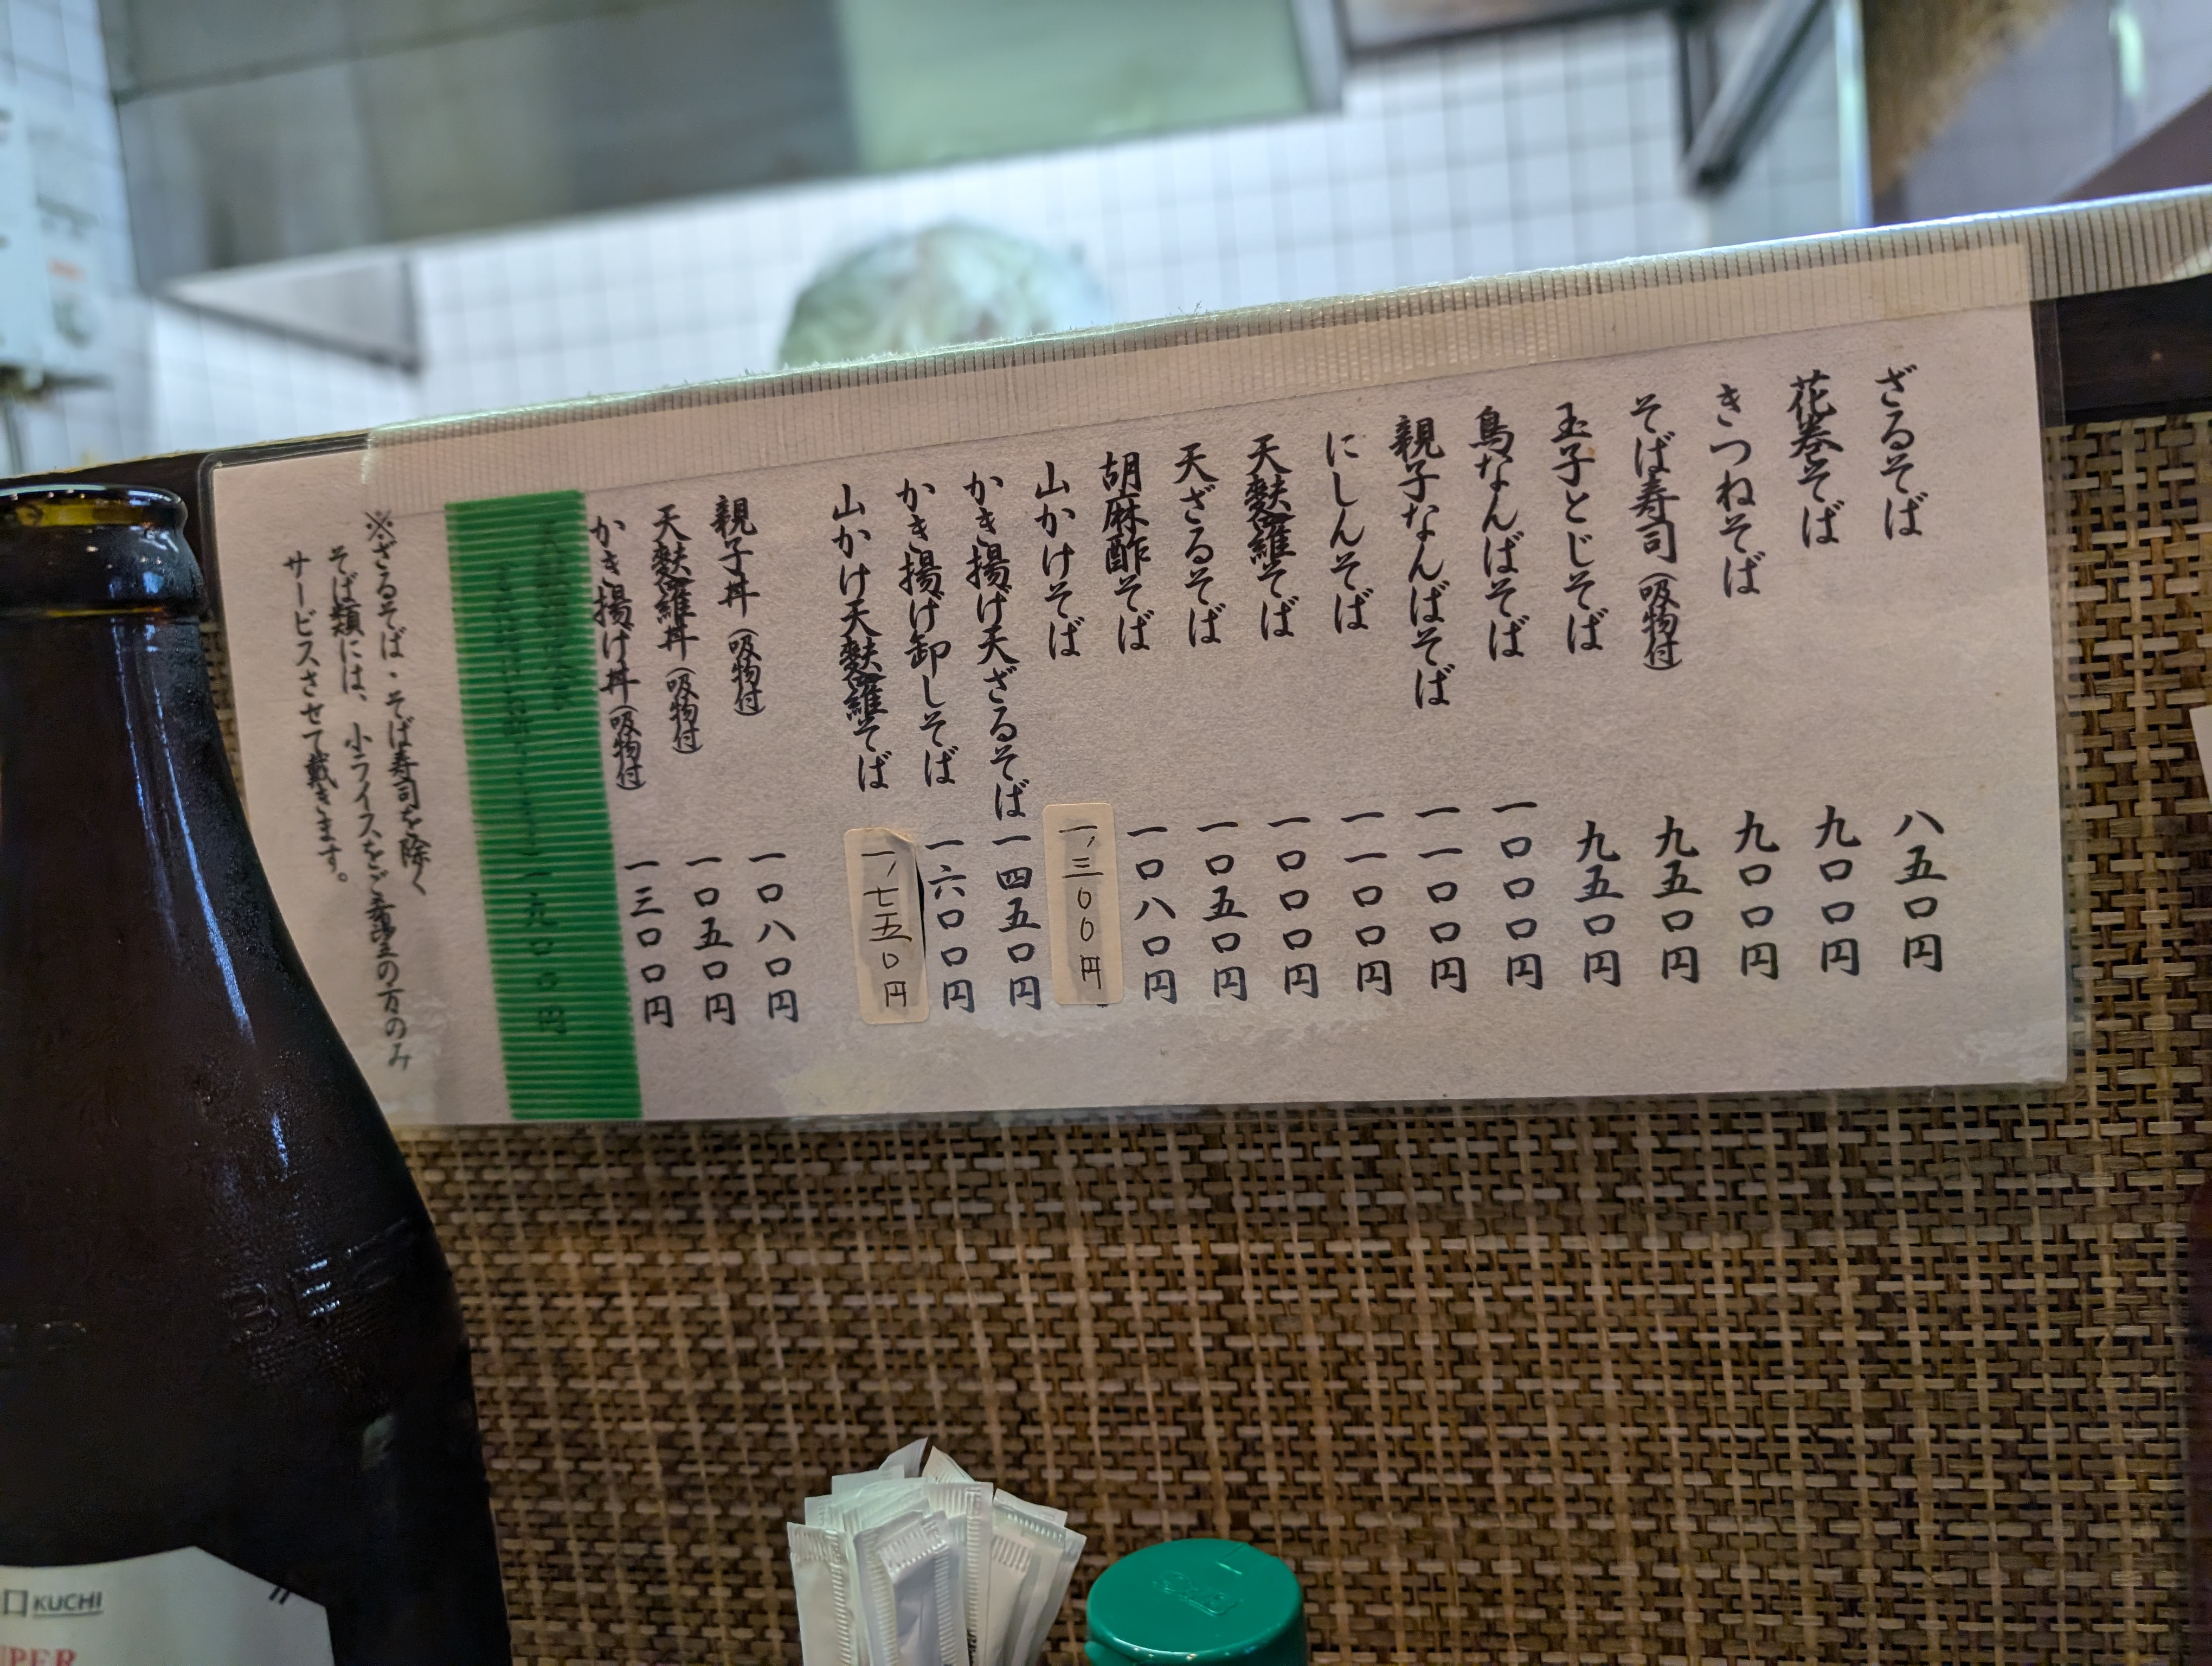 ざるそば 八五〇円
花巻そば 九〇〇円
きつねそば 九〇〇円
そば寿司（吸物付） 九五〇円
玉子とじそば 九五〇円
鳥なんばそば 一〇〇〇円
親子なんばそば 一一〇〇円
にしんそば 一一〇〇円
天麩羅そば 一〇〇〇円
天ざるそば 一〇五〇円
胡麻酢そば 一〇八〇円
山かけそば 一,三〇〇円
かき揚げ天ざるそば 一四五〇円
かき揚げ卸しそば 一六〇〇円
山かけ天麩羅そば 一,七五〇円
親子丼（吸物付） 一〇八〇円
天麩羅丼（吸物付） 一〇五〇円
かき揚げ丼（吸物付） 一三〇〇円
一九〇〇円
※ざるそば・そば寿司を除く
そば類には、小ライスをご希望の方のみ
サービスさせて戴きます。
口 KUCHI